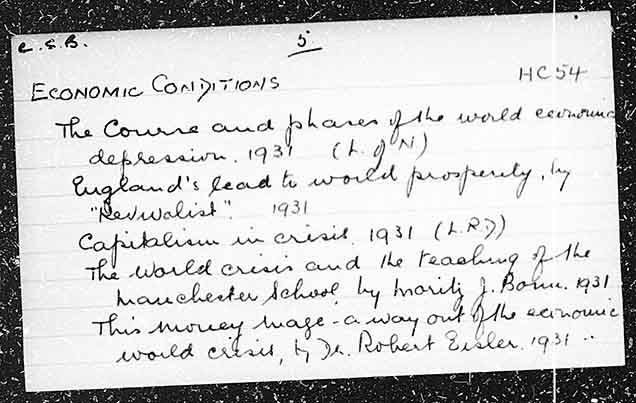 C.S.B.
5
ECONOMIC CONDITIONS
HC54
The Course and phases of the world economic
depression. 1931 (L. of N)
England's lead to world prosperity, by
"Revivalist". 1931
Capitalism in crisis. 1931 (L.R.D)
The world crisis and the teaching of the
Manchester School, by Moritz J. Bonn. 1931
This money maze - a way out of the economic
world crisis, by Dr. Robert Eisler. 1931